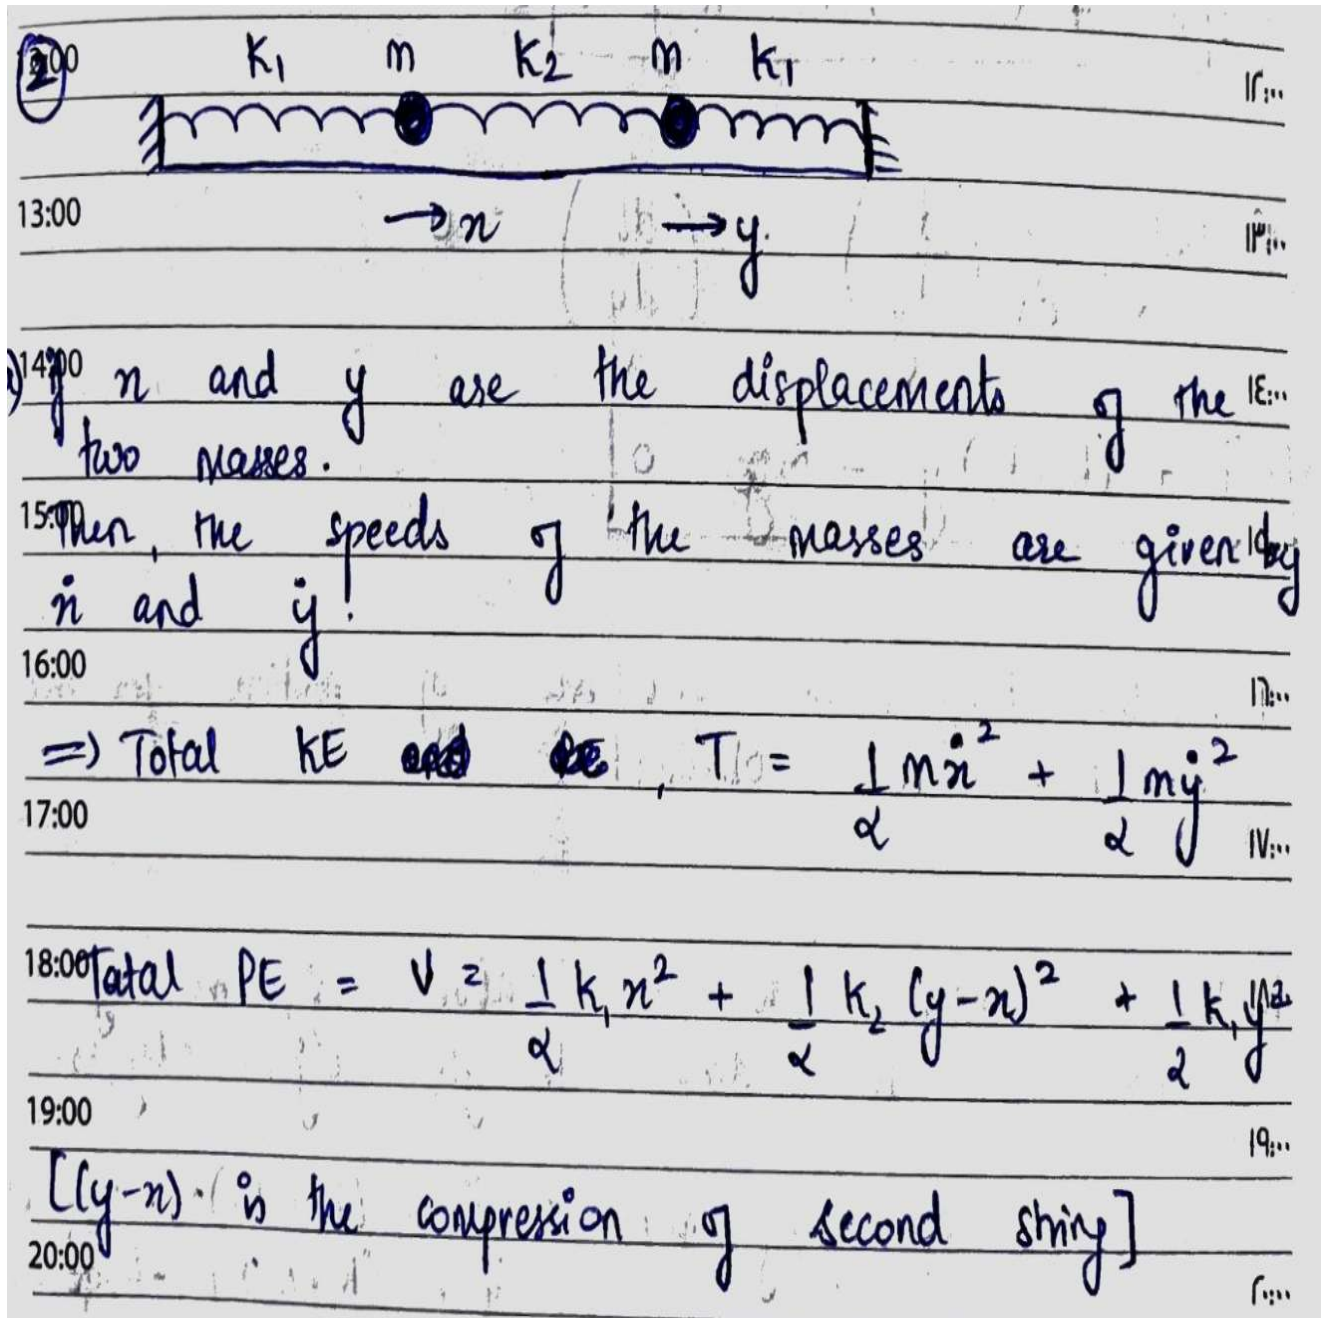 2
K₁ m K₂ m K₁
12:00 ١٢:٠٠
→ x → y
13:00 ١٣:٠٠
a) if x and y are the displacements of the
14:00 ١٤:٠٠
two masses.
15:00
Then, the speeds of the masses are given by
ẋ and ẏ.
16:00 ١٦:٠٠
=) Total KE , T = 1/2 mẋ² + 1/2 mẏ²
17:00 ١٧:٠٠
18:00
Tatal PE = V = 1/2 K₁x² + 1/2 K₂ (y-x)² + 1/2 K₁y²
19:00 ١٩:٠٠
[(y-x) is the compression of second string]
20:00 ٢٠:٠٠